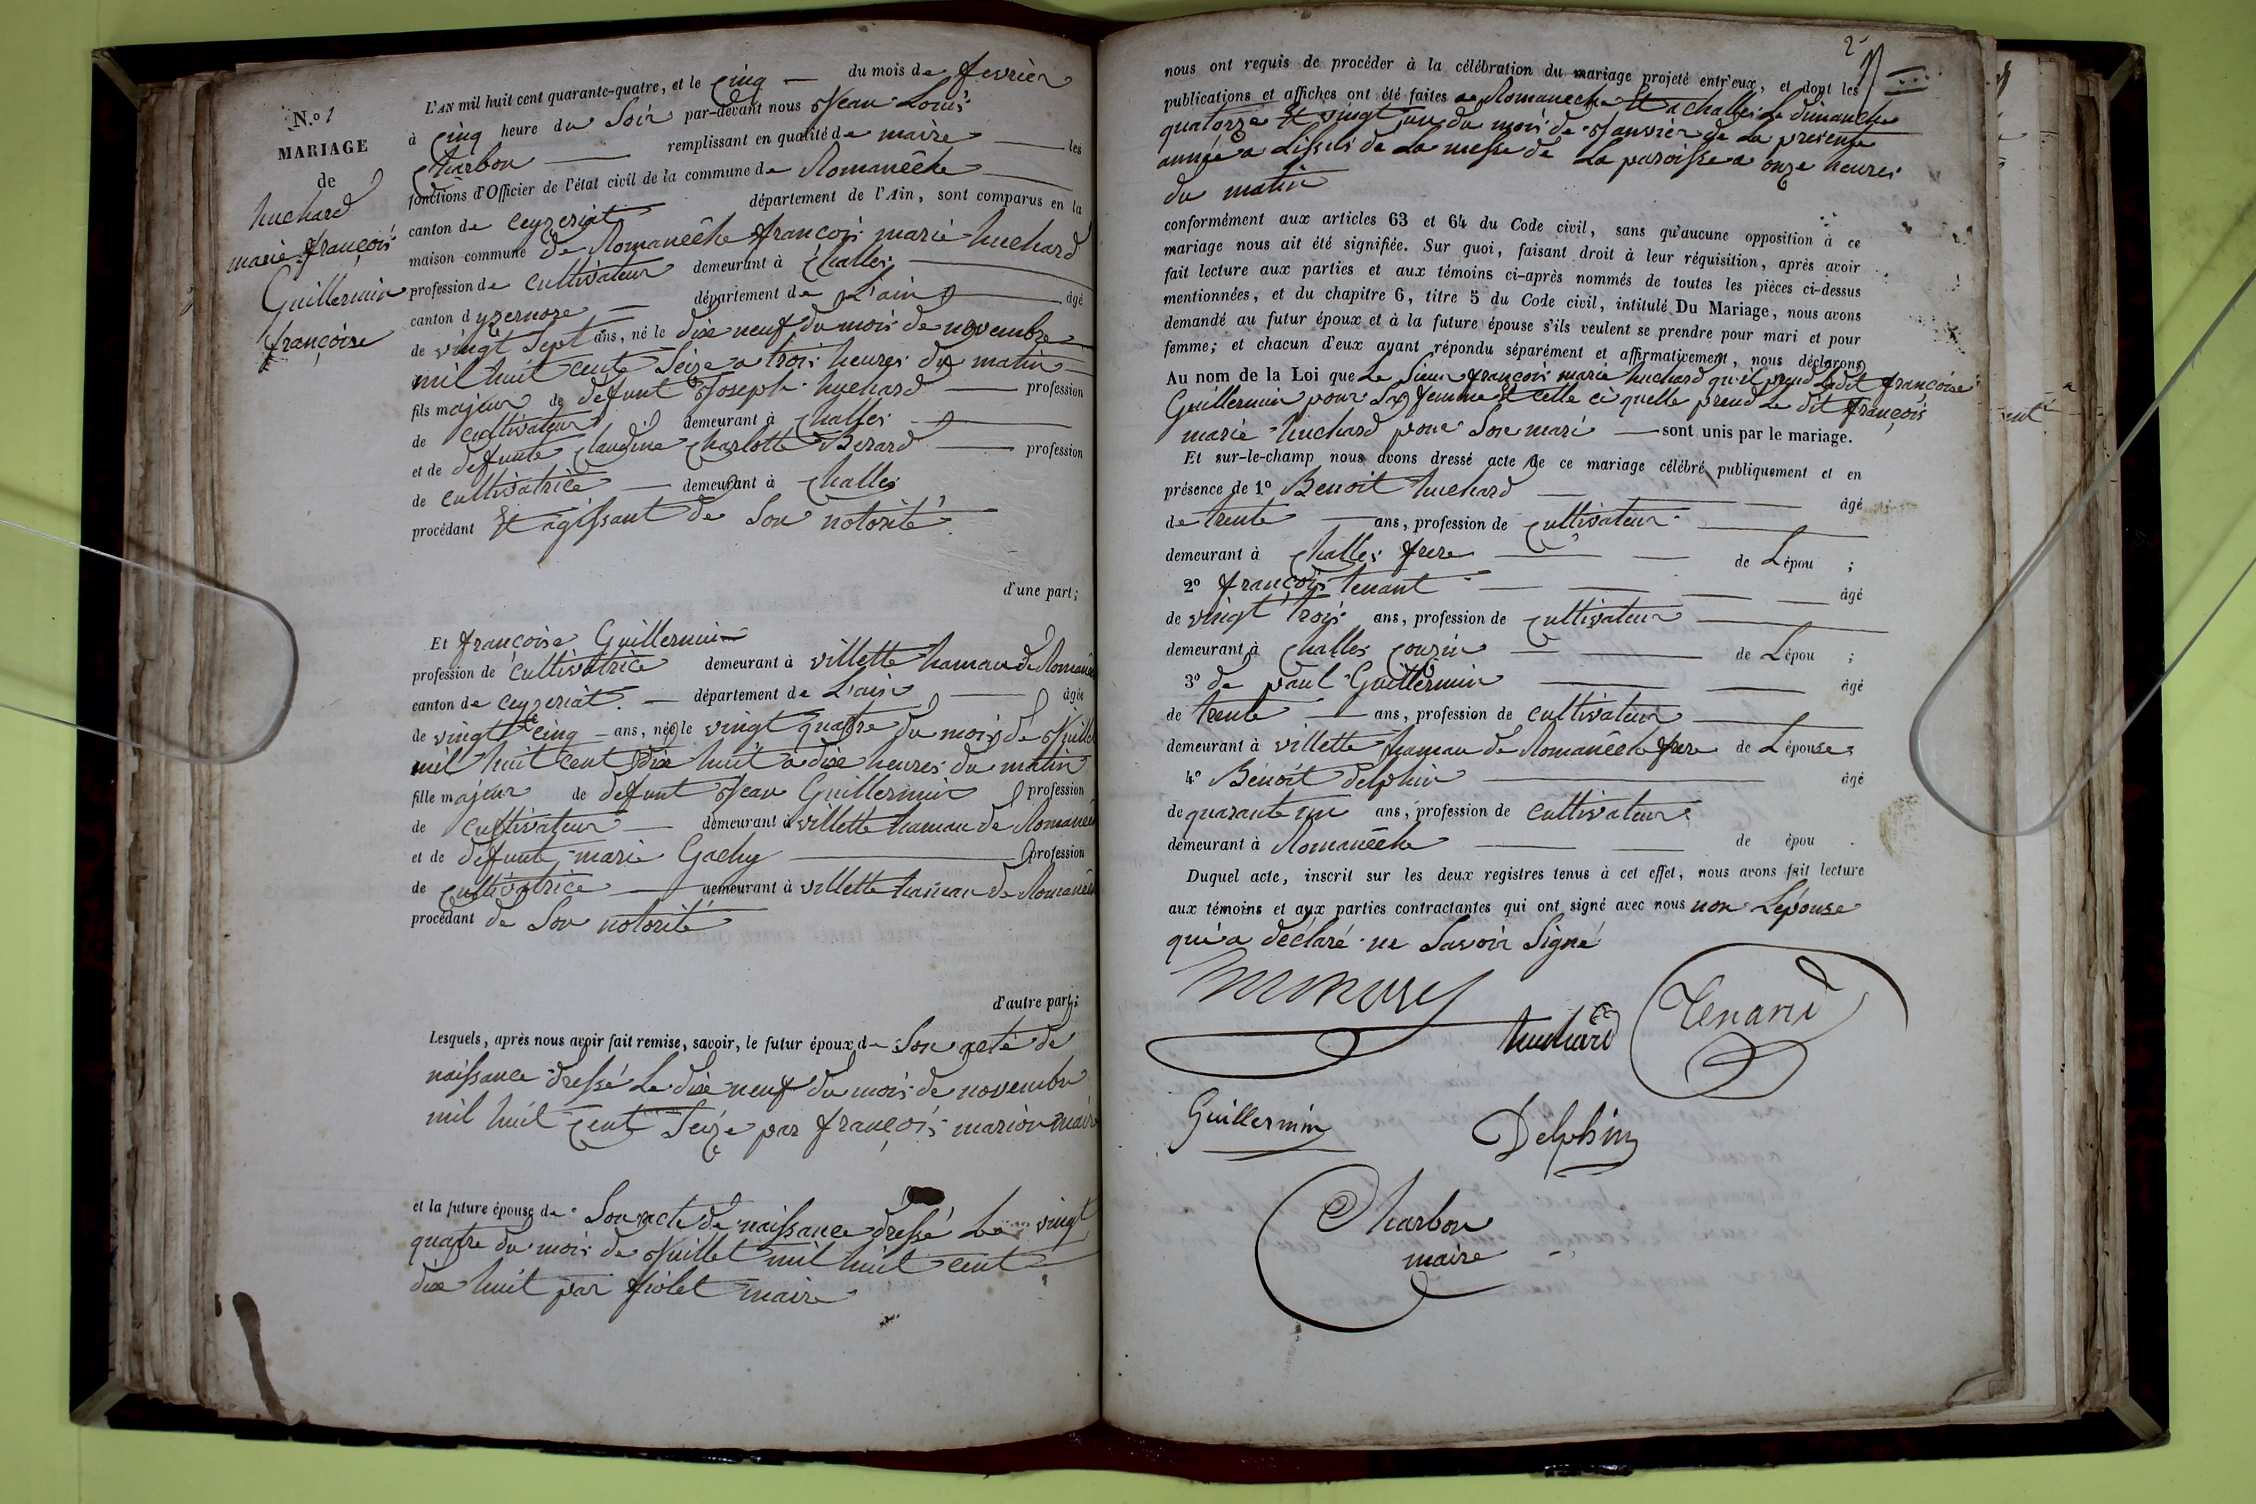 N.º 1
MARIAGE
de
huchard
marie françois
Guillermin
françoise
L'AN mil huit cent quarante-quatre, et le cinq du mois de fevrier
à cinq heure du Soir par-devant nous Jean Louis
Charbon remplissant en qualité de maire les
fonctions d'Officier de l'état civil de la commune de Romanêche
canton de ceyzeriat département de l'Ain, sont comparus en la
maison commune de Romanêche françois marie huchard
profession de cultivateur demeurant à Challes
canton d yzernore département de L'ain âgé
de vingt Sept ans, né le dixe neuf du mois de novembre
mil huit cents Seize a trois heures du matin
fils majeur de défunt Joseph huchard profession
de cultivateur demeurant à Challes
et de defunte Claudine Charlotte Berard profession
de cultivatrice demeurant à Challes
procédant Et agissant de Son notorité
d'une part;
Et françoise Guillermin
profession de cultivatrice demeurant à villette hamau de Romanê
canton de ceyzeriat département de L'ain âgée
de vingt cinq ans, née le vingt quatre du mois de Juillet
mil huit cent dixe huit a dixe heures du matin
fille majeur de defunt Jean Guillermin profession
de cultivateur demeurant à villette hamau de Romanê
et de défunte marie Gachy profession
de cultivatrice demeurant à villette hamau de Romanê
procédant de Son notorité
d'autre part;
Lesquels, après nous avoir fait remise, savoir, le futur époux d- Son acte de
naissance dressé Le dixe neuf du mois de novembre
mil huit cent Seize par françois marion maire
et la future épouse de Son acte de naissance dressé Le vingt
quatre du mois de Juillet mil huit cent
dixe huit par fiolet maire
2
nous ont requis de procéder à la célébration du mariage projeté entr'eux, et dont les
publications et affiches ont été faites a Romaneche Et a challes Le dimanche
quatorze Et vingt un du mois de Janvier de La presente
année a Lissus de La messe de La paroisse a onze heures
du matin
conformément aux articles 63 et 64 du Code civil, sans qu'aucune opposition à ce
mariage nous ait été signifiée. Sur quoi, faisant droit à leur réquisition, après avoir
fait lecture aux parties et aux témoins ci-après nommés de toutes les pièces ci-dessus
mentionnées, et du chapitre 6, titre 5 du Code civil, intitulé Du Mariage, nous avons
demandé au futur époux et à la future épouse s'ils veulent se prendre pour mari et pour
femme; et chacun d'eux ayant répondu séparément et affirmativement, nous déclarons
Au nom de la Loi que Le Sieur françois marie huchard qu'il prend Ladit françoise
Guillermin pour Sa femme Et celle ci quelle prend Le dit françois
marie huchard pour Son mari sont unis par le mariage.
Et sur-le-champ nous avons dressé acte de ce mariage célébré publiquement et en
présence de 1º Benoit huchard âgé
de trente ans, profession de cultivateur
demeurant à Challes frere de Lépou ;
2º françois tenant âgé
de vingt trois ans, profession de cultivateur
demeurant à Challes cousin de Lépou ;
3º de paul Guillermin âgé
de trente ans, profession de cultivateur
demeurant à villette hamau de Romanêche frere de Lépouse;
4º Bénoit delphin âgé
de quarante un ans, profession de cultivateur
demeurant à Romanêche de épou .
Duquel acte, inscrit sur les deux registres tenus à cet effet, nous avons fait lecture
aux témoins et aux parties contractantes qui ont signé avec nous non Lépouse
qui a déclaré ne Savoir Signé
huchard
Tenand
Guillermin
Delphin
Charbon
maire